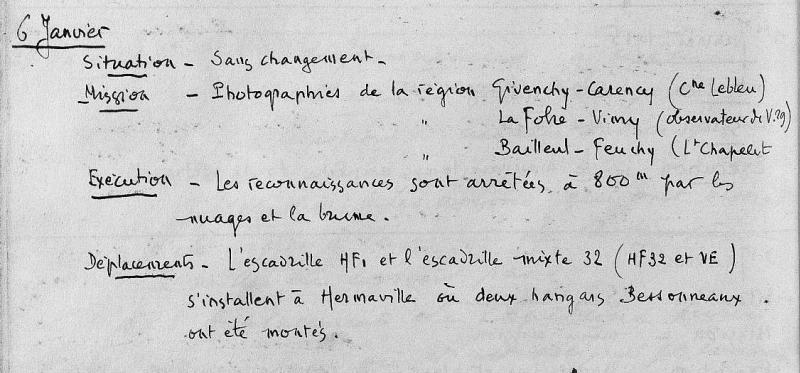 6 Janvier
Situation - Sans changement -
Mission - Photographies de la région Givenchy - Carency (Cne Lebleu)
" La Folie - Vimy (observateur de V.29)
" Bailleul - Feuchy (Lt Chapelet
Exécution - Les reconnaissances sont arrêtées à 800m par les
nuages et la brume.
Déplacements - L'escadrille HF1 et l'escadrille mixte 32 (HF32 et VE)
s'installent à Hermaville où deux hangars Bessonneaux
ont été montés.